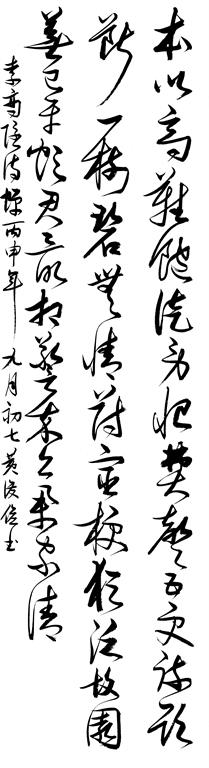 本以高難飽徒勞恨費聲五更疎欲
斷一樹碧無情薄宦梗猶泛故園
蕪已平煩君最相警我亦舉家清
李商隱詩蟬丙申年九月初七黄俊书